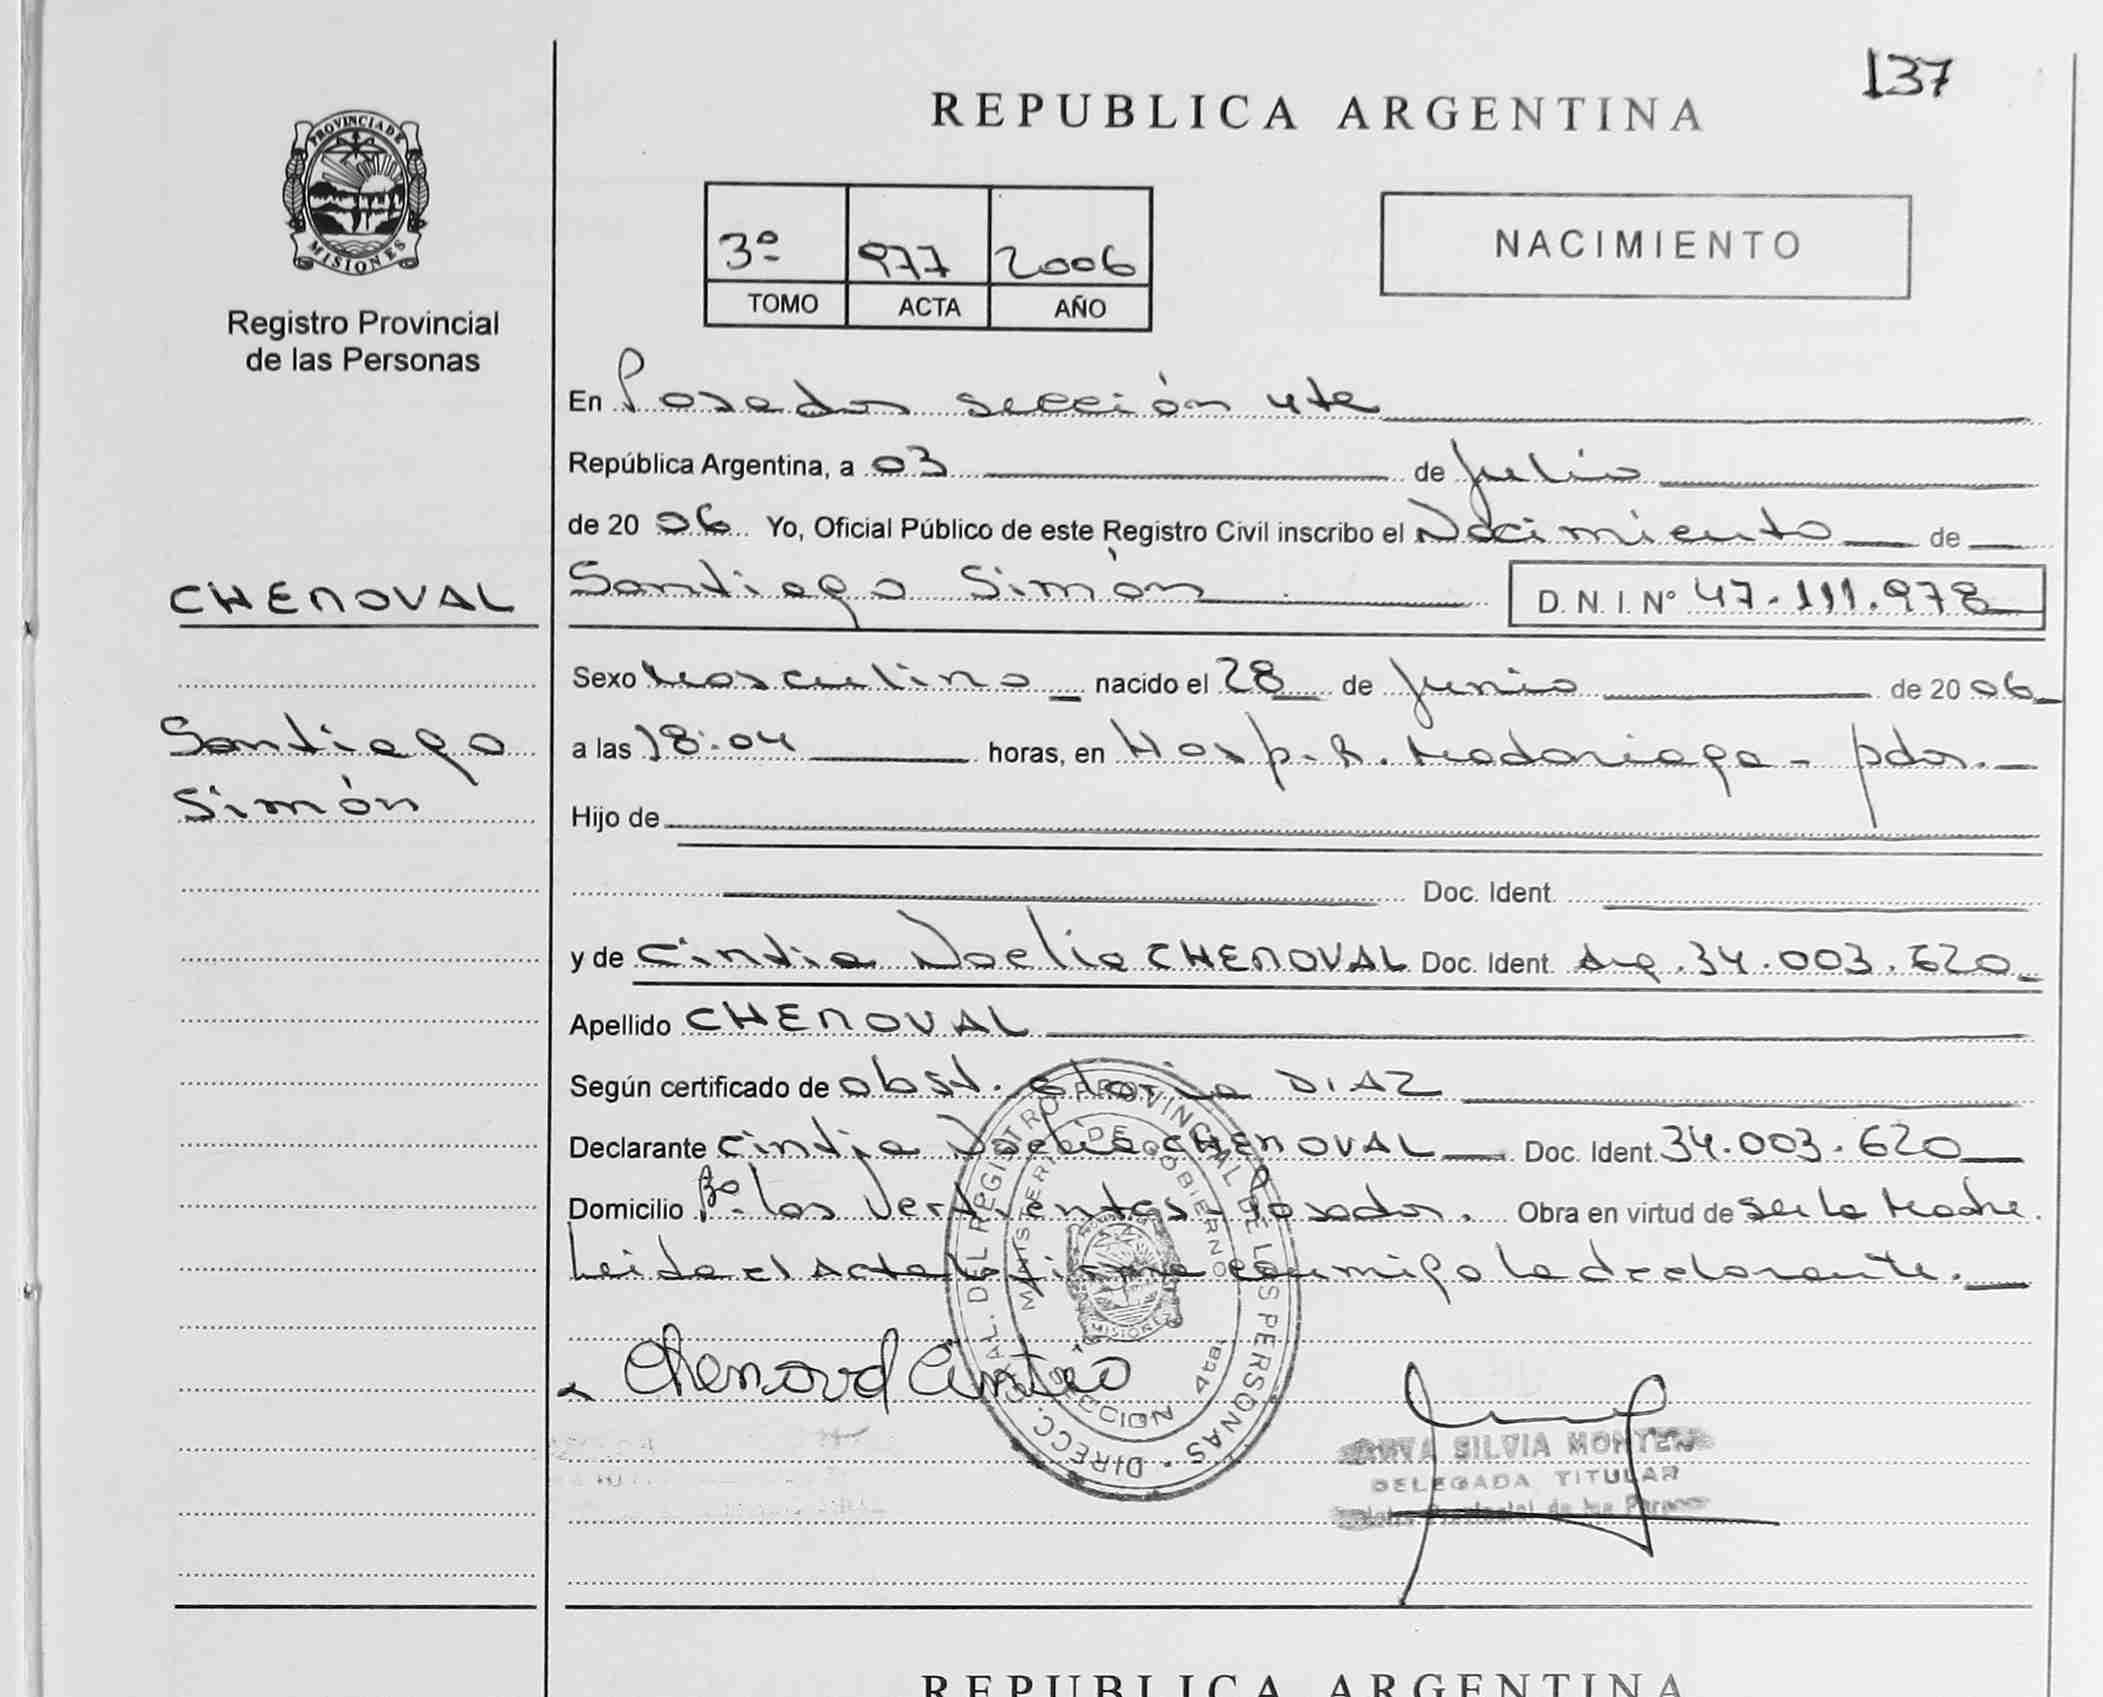 137
REPUBLICA ARGENTINA
PROVINCIA DE
MISIONES
Registro Provincial
de las Personas
3º 977 2006
TOMO ACTA AÑO
NACIMIENTO
En Posadas sección 4ta
República Argentina, a 03 de Julio
de 2006 Yo, Oficial Público de este Registro Civil inscribo el Nacimiento de
CHENOVAL
Santiago Simón D. N. I. Nº 47.111.978
Sexo Masculino nacido el 28 de Junio de 2006
Santiago
Simón
a las 18:04 horas, en Hosp. R. Madariaga - pdas.
Hijo de
Doc. Ident.
y de Cintia Noelia CHENOVAL Doc. Ident. Arg. 34.003.620
Apellido CHENOVAL
Según certificado de obst. Gloria DIAZ
Declarante Cintia Noelia CHENOVAL Doc. Ident. 34.003.620
Domicilio Bº Las Vertientes - Posadas. Obra en virtud de ser la Madre.
Leida el Acta la firma conmigo la declarante.
Chenoval Cintia
DIRECC. GRAL. DEL REGISTRO PROVINCIAL DE LAS PERSONAS
MINISTERIO DE GOBIERNO
SECCION 4ta.
MISIONES
SILVIA
DELEGADA TITULAR
de las
REPUBLICA ARGENTINA